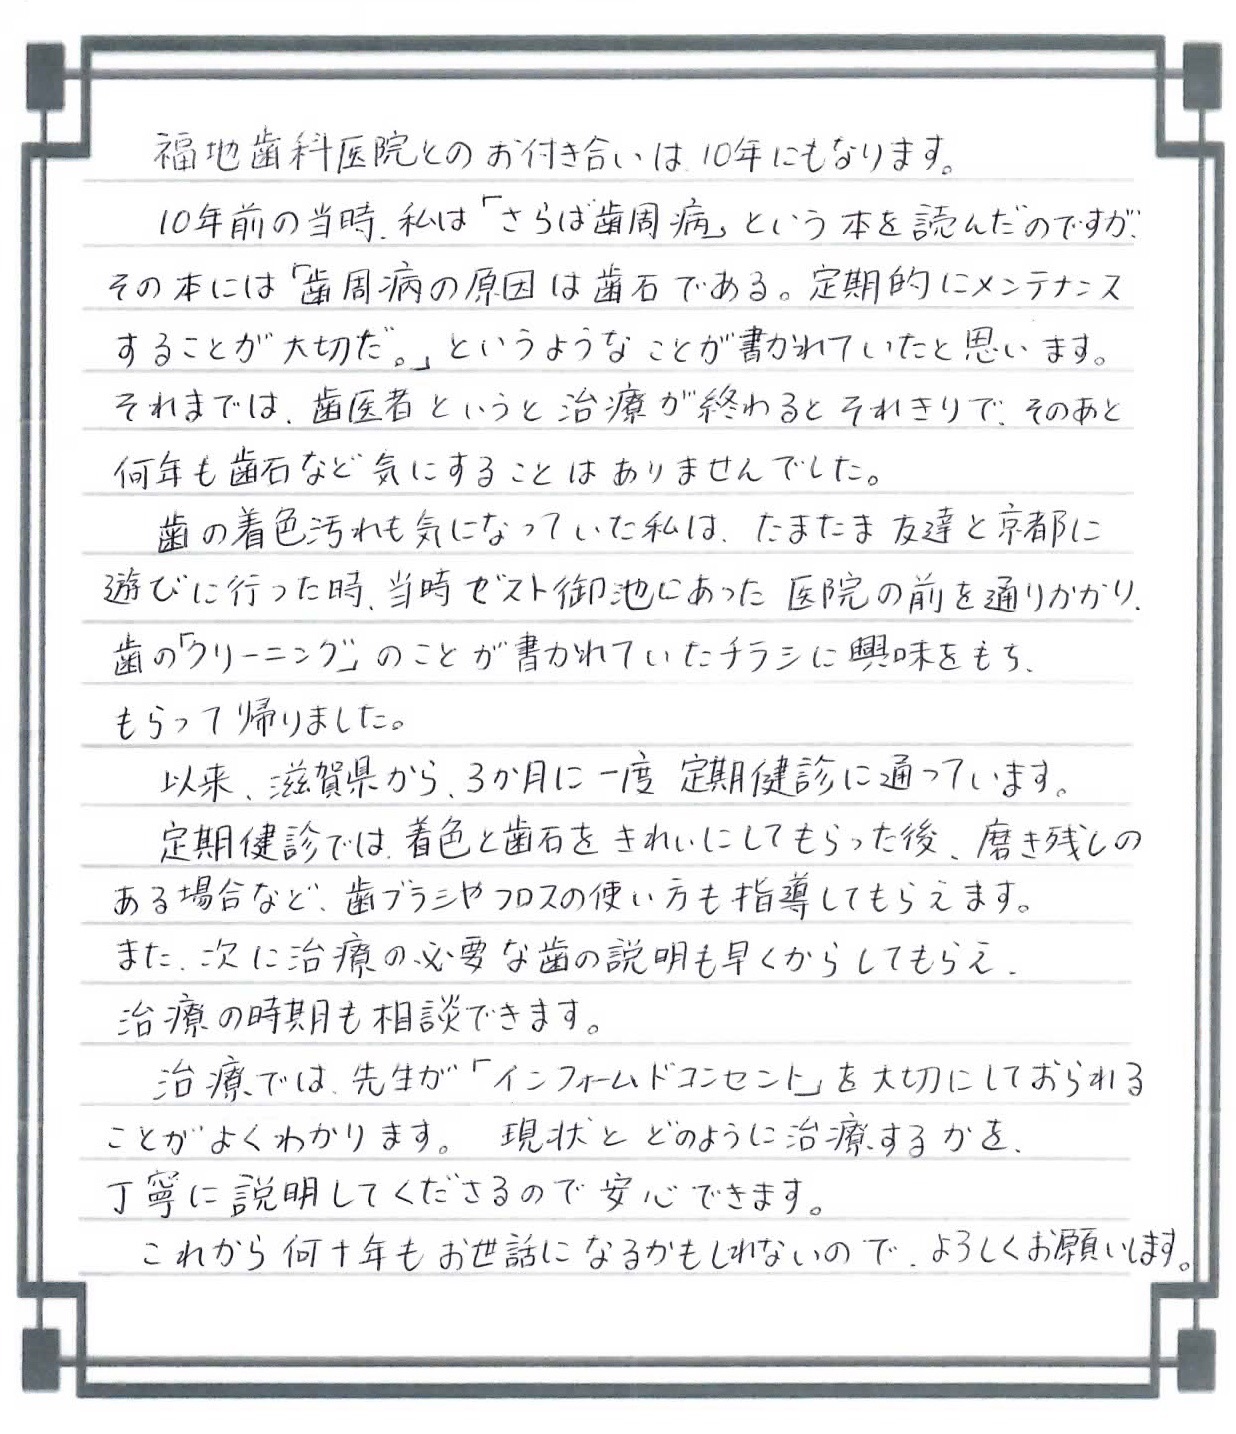 福地歯科医院とのお付き合いは、10年にもなります。
10年前の当時、私は「さらば歯周病」という本を読んだのですが、
その本には「歯周病の原因は歯石である。定期的にメンテナンス
することが大切だ。」というようなことが書かれていたと思います。
それまでは、歯医者というと治療が終わるとそれきりで、そのあと
何年も歯石など気にすることはありませんでした。
歯の着色汚れも気になっていた私は、たまたま友達と京都に
遊びに行った時、当時ゼスト御池にあった医院の前を通りかかり、
歯の「クリーニング」のことが書かれていたチラシに興味をもち、
もらって帰りました。
以来、滋賀県から、3か月に一度定期健診に通っています。
定期健診では、着色と歯石をきれいにしてもらった後、磨き残しの
ある場合など、歯ブラシやフロスの使い方も指導してもらえます。
また、次に治療の必要な歯の説明も早くからしてもらえ、
治療の時期も相談できます。
治療では、先生が「インフォームドコンセント」を大切にしておられる
ことがよくわかります。 現状とどのように治療するかを、
丁寧に説明してくださるので安心できます。
これから何十年もお世話になるかもしれないので、よろしくお願いします。